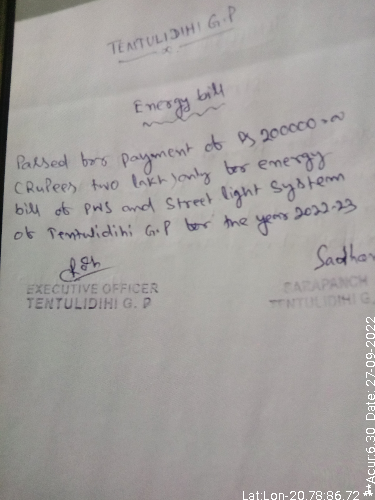 TENTULIDIHI G.P
Energy bill
Passed for payment of Rs 200000=00
(Rupees two lakh) only for energy
bill of PWS and Street light System
of Tentulidihi G.P for the year 2022-23
EXECUTIVE OFFICER
TENTULIDIHI G. P
Sadhan
SARAPANCH
TENTULIDIHI G.
Lat:Lon-20.78:86.72
**Acur:6.30 Date: 27-09-2022